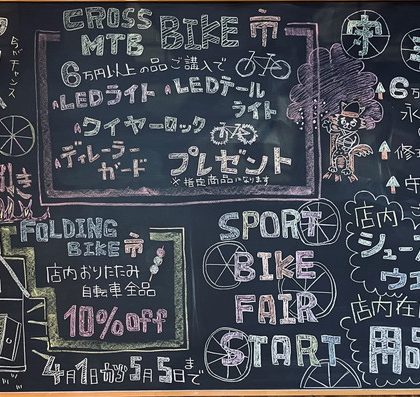 CROSS
MTB BIKE 市
6万円以上の品ご購入で
LEDライト LEDテール
ライト
ワイヤーロック
ディレーラー
ガード プレゼント
※指定商品になります
タッチャンス
引き
FOLDING
BIKE 市
店内おりたたみ
自転車全品
10%off
4月1日から5月5日まで
SPORT
BIKE
FAIR
START
守
6万
永
修
店内
シュー
ウェ
店内在